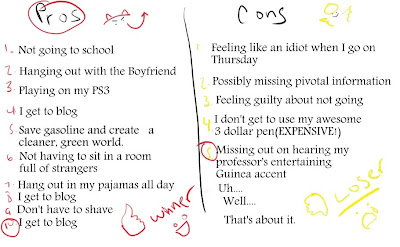 Pros
1. Not going to school
2. Hanging out with the Boyfriend
3. Playing on my PS3
4. I get to blog
5. Save gasoline and create a
cleaner, green world.
6. Not having to sit in a room
full of strangers
7. Hang out in my pajamas all day
8 I get to blog
9. Don't have to shave
10 I get to blog
winner
Cons
1. Feeling like an idiot when I go on
Thursday
2. Possibly missing pivotal information
3. Feeling guilty about not going
4. I don't get to use my awesome
3 dollar pen(EXPENSIVE!)
5 Missing out on hearing my
professor's entertaining
Guinea accent
Uh....
Well....
That's about it.
Loser